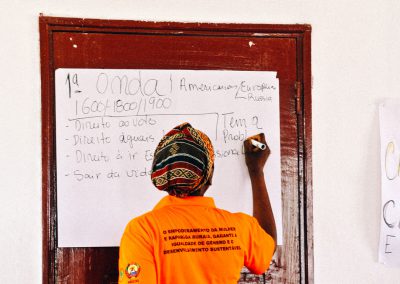 1ª onda! Americanas/Europeias
Russia
1600/1800/1900
- Direito ao voto
- Direito águais
- Direito á ir Es
- Sair da vida
Tem
O EMPODERAMENTO DA MULHER
E RAPARIGA RURAIS, GARANTE A
IGUALDADE DE GÉNERO E O
DESENVOLVIMENTO SUSTENTÁVEL